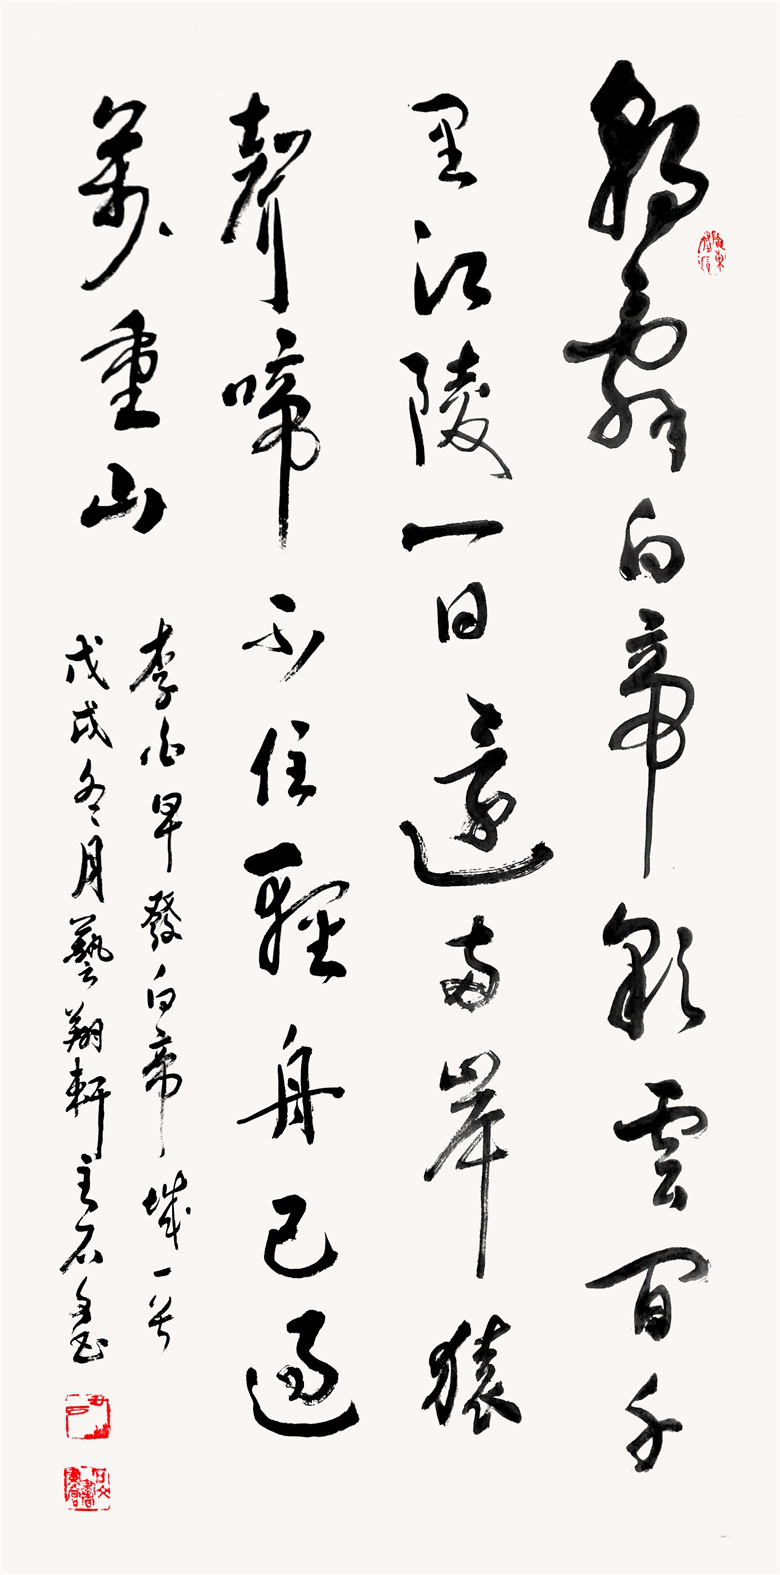 朝辭白帝彩雲間千
里江陵一日還兩岸猿
聲啼不住輕舟已過
萬重山
李白早發白帝城一首
戊戌冬月藝翔軒主石